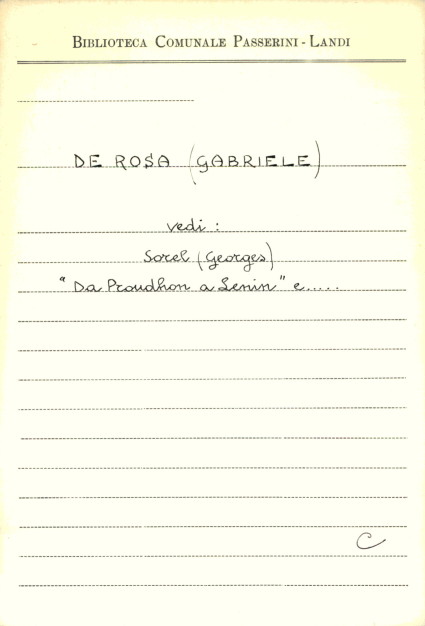 BIBLIOTECA COMUNALE PASSERINI - LANDI
DE ROSA (GABRIELE)
vedi :
Sorel (Georges)
"Da Proudhon a Lenin" e.....
C